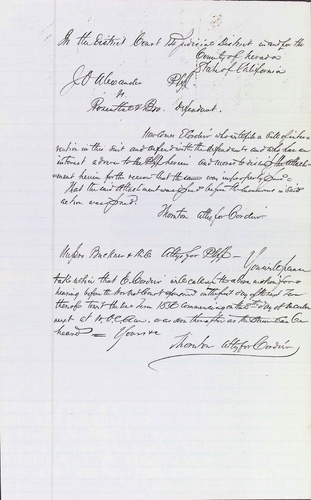 In the District Court 14 Judicial District in and for the
County of Nevada
State of California
J O Alexander Plff
vs
Rosenthal & Bro. Defendant.
Now comes E Cordier who interplead a bill of inter
vention in this suit and defend with the Defendants and who has an
interest adverse to the Plff herein and moves to dissolve the attach
ment herein for the reason that the same was improperly
That the said attachment was before the summons in said
action was issued.
Thornton Atty for Cordier
Messrs Buckner & Hill Attys for Plffs – You will please
take notice that E. Cordier will call up the above motion for a
hearing before the District Court aforesaid on the first day of the next Term
thereof to wit the Term 1856 commencing on the day of
next at 10 O.C. A.M. or as soon thereafter as the same can be
heard = Yours &c
Thornton Atty for Cordier